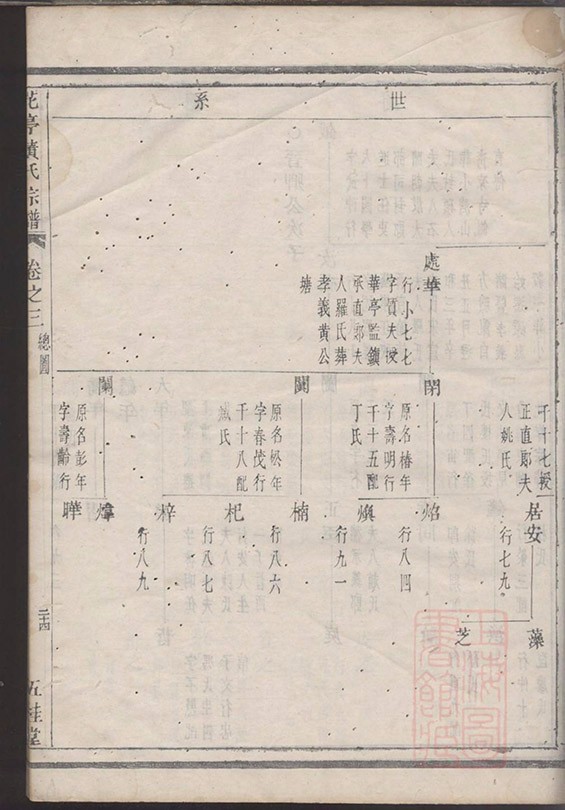 世系
處華
行小七七
字質夫授
華亭監鎮
承直郎夫
人羅氏葬
孝義黄公
塘
千十七授
正直郎夫
人姚氏
閉
原名椿年
字壽明行
千十五配
丁氏
闐
原名松年
字春茂行
千十八配
氏
闌
原名彭年
字壽齡行
居安
行七九
焰
行八四
煥
行九一
楠
行八六
杞
行八七夫
氏
梓
行八九
煒
曄
藻
芝
花亭黄氏宗譜
卷之三
總圖
二十四
五桂堂
上海圖書館藏